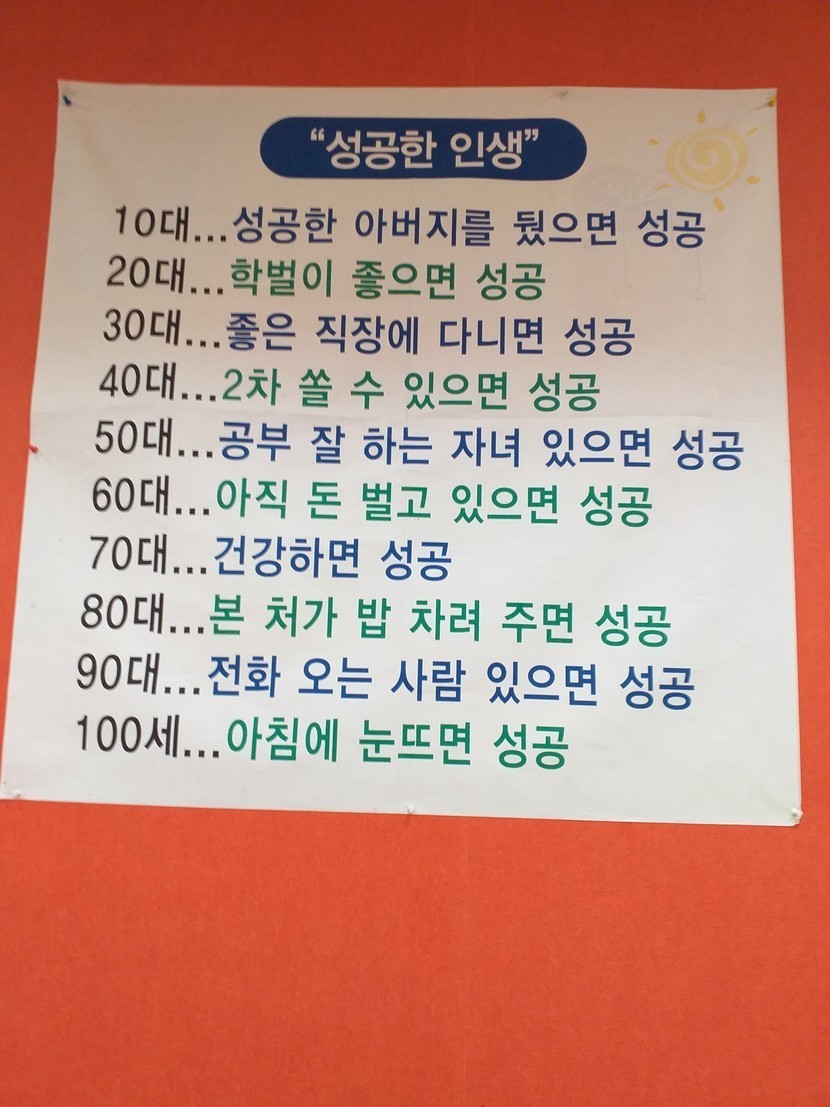 “성공한 인생”
10대...성공한 아버지를 뒀으면 성공
20대...학벌이 좋으면 성공
30대...좋은 직장에 다니면 성공
40대...2차 쏠 수 있으면 성공
50대...공부 잘 하는 자녀 있으면 성공
60대...아직 돈 벌고 있으면 성공
70대...건강하면 성공
80대...본 처가 밥 차려 주면 성공
90대...전화 오는 사람 있으면 성공
100세...아침에 눈뜨면 성공